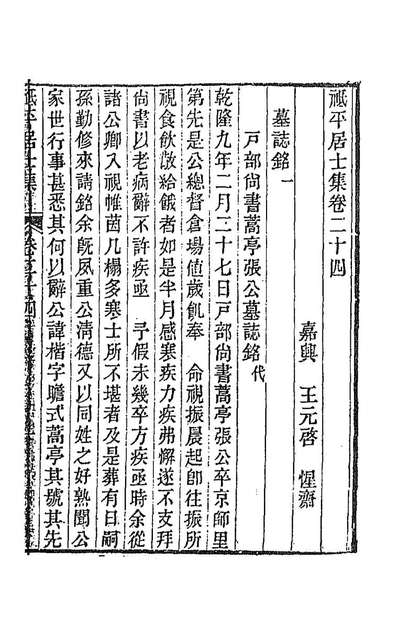 祗平居士集卷二十四
嘉興　王元啓　惺齋
墓誌銘一
戸部尚書蒿亭張公墓誌銘代
乾隆九年二月二十七日戸部尚書蒿亭張公卒京師里
第先是公總督倉場値歲飢奉　命視振晨起卽往振所
視食飲散給餓者如是半月感寒疾力疾弗懈遂不支拜
尚書以老病辭不許疾亟　予假未幾卒方疾亟時余從
諸公卿入視帷茵几榻多寒士所不堪者及是葬有日嗣
孫勤修來請銘余旣夙重公淸德又以同姓之好熟聞公
家世行事甚悉其何以辭公諱楷字瞻式蒿亭其號其先
祗平居士集
卷二十四